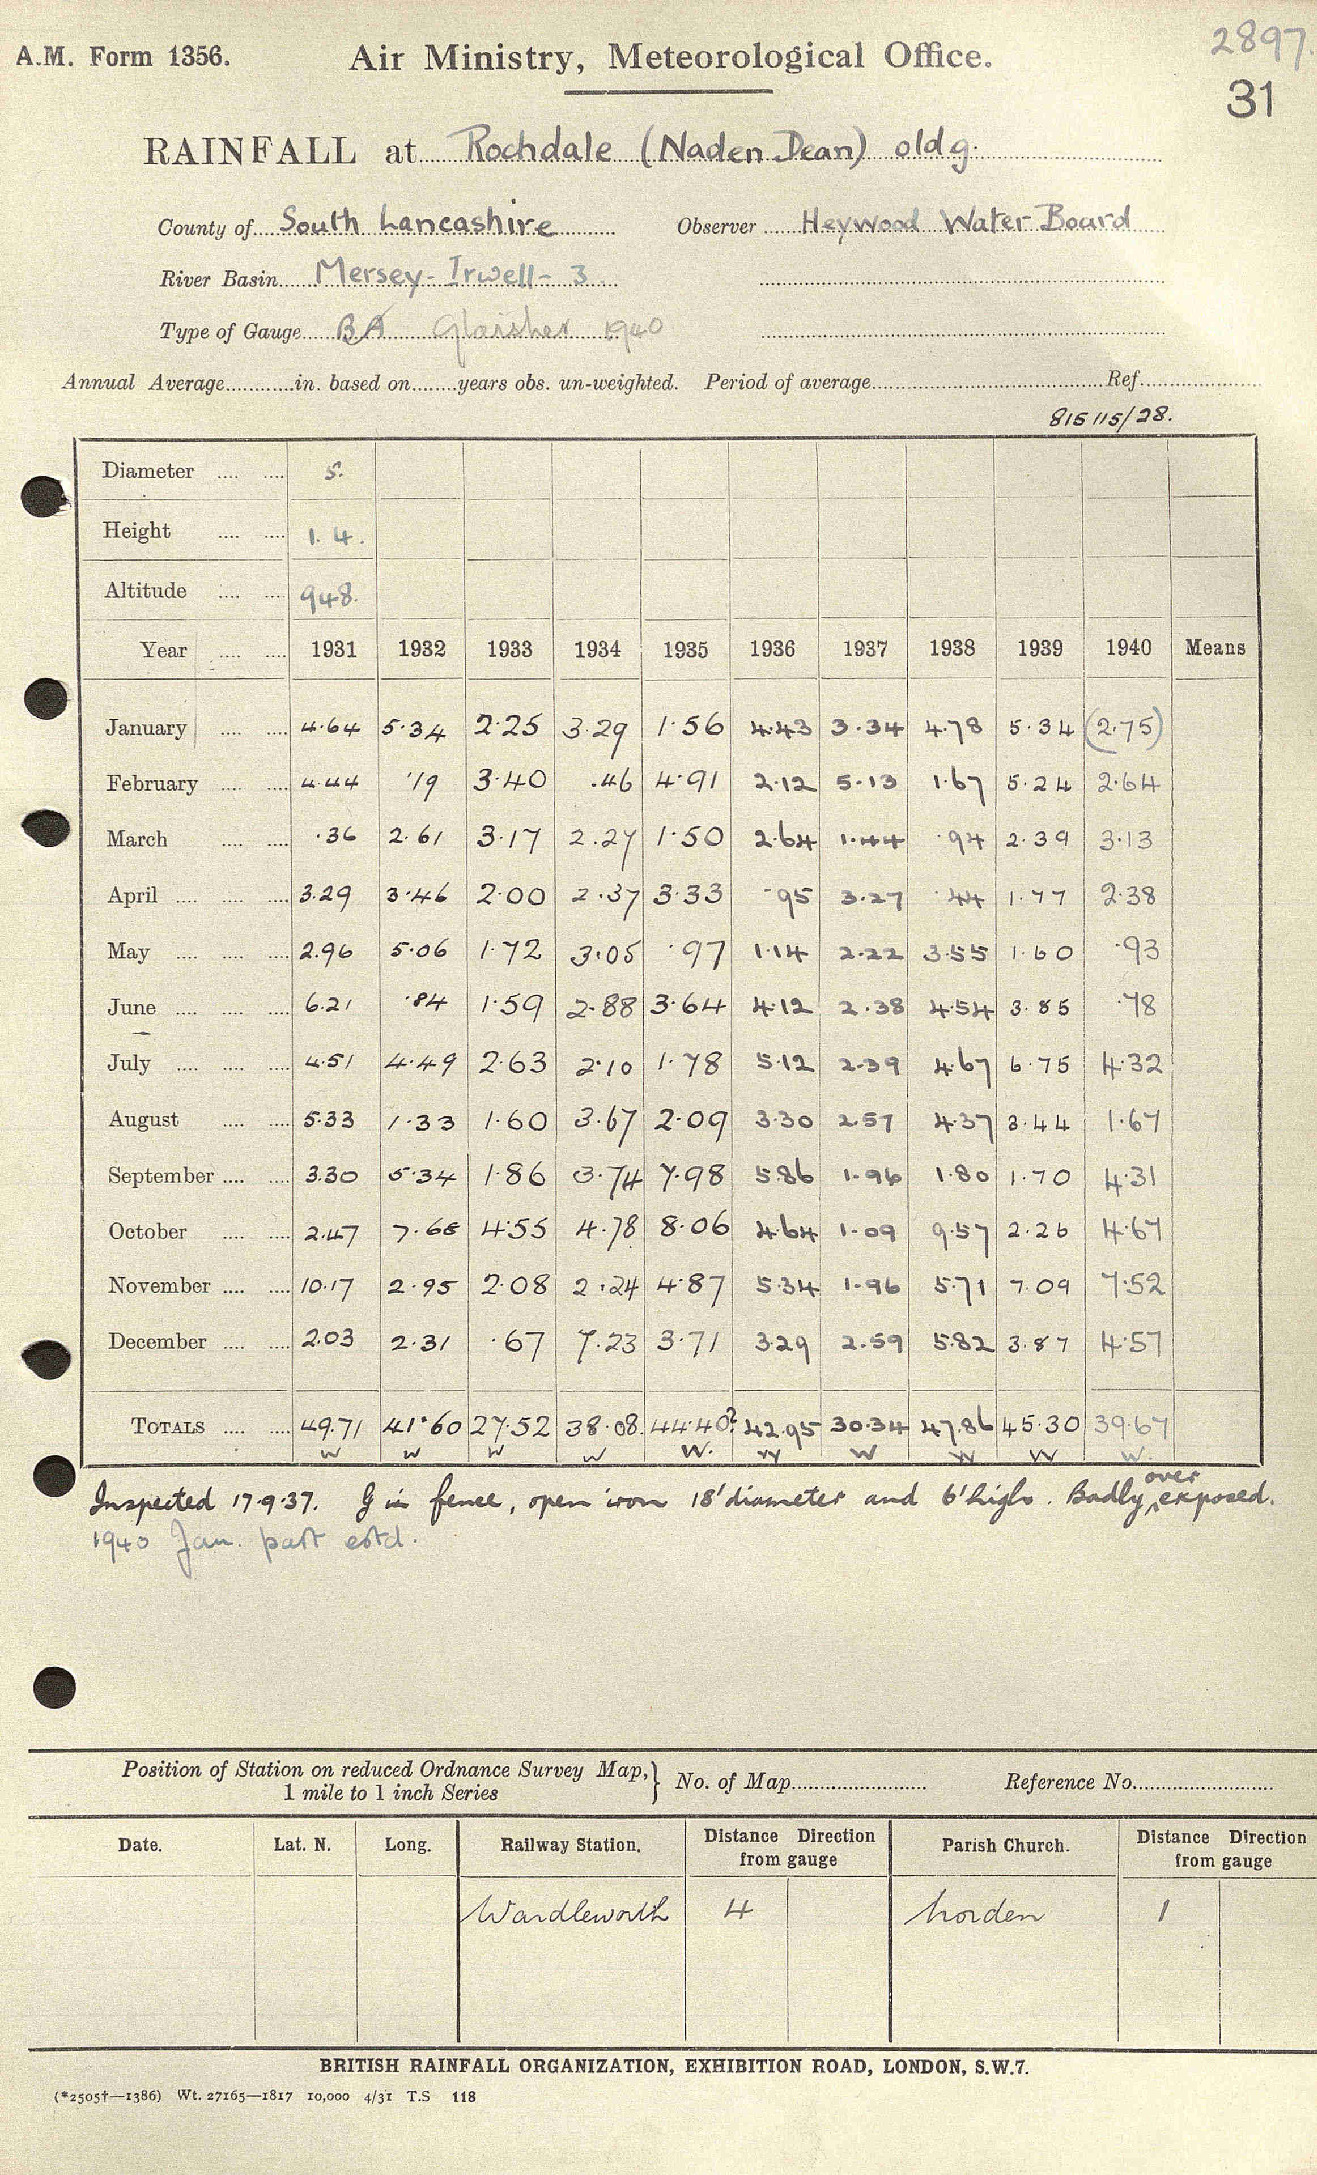 A.M. Form 1356.
Air Ministry, Meteorological Office.
2897.
31
RAINFALL at Rochdale (Naden Dean) old g.
County of South Lancashire Observer Heywood Water Board
River Basin Mersey - Irwell - 3
Type of Gauge BA Glaisher 1940
Annual Average in. based on years obs. un-weighted. Period of average Ref.
815115/28.
Diameter 5.
Height 1. 4.
Altitude 948.
Year 1931 1932 1933 1934 1935 1936 1937 1938 1939 1940 Means
January 4.64 5.34 2.25 3.29 1.56 4.43 3.34 4.78 5.34 (2.75)
February 4.44 .19 3.40 .46 4.91 2.12 5.13 1.67 5.24 2.64
March .36 2.61 3.17 2.27 1.50 2.64 1.44 .94 2.39 3.13
April 3.29 3.46 2.00 2.37 3.33 .95 3.27 .44 1.77 2.38
May 2.96 5.06 1.72 3.05 .97 1.14 2.22 3.55 1.60 .93
June 6.21 .84 1.59 2.88 3.64 4.12 2.38 4.54 3.85 .78
July 4.51 4.49 2.63 2.10 1.78 5.12 2.39 4.67 6.75 4.32
August 5.33 1.33 1.60 3.67 2.09 3.30 2.57 4.37 3.44 1.67
September 3.30 5.34 1.86 3.74 7.98 5.86 1.96 1.80 1.70 4.31
October 2.47 7.68 4.55 4.78 8.06 4.64 1.09 9.57 2.26 4.67
November 10.17 2.95 2.08 2.24 4.87 5.34 1.96 5.71 7.09 7.52
December 2.03 2.31 .67 7.23 3.71 3.29 2.59 5.82 3.87 4.57
TOTALS 49.71 41.60 27.52 38.08 44.40? 42.95 30.34 47.86 45.30 39.67
W W W W W. W W W W W.
Inspected 17.9.37. G in fence, open iron 18' diameter and 6' high. Badly over exposed.
1940 Jan. part estd.
Position of Station on reduced Ordnance Survey Map, } No. of Map Reference No.
1 mile to 1 inch Series
Date. Lat. N. Long. Railway Station. Distance Direction from gauge Parish Church. Distance Direction from gauge
Wardleworth 4 Norden 1
BRITISH RAINFALL ORGANIZATION, EXHIBITION ROAD, LONDON, S.W.7.
(*2505†—1386) Wt. 27165—1817 10,000 4/31 T.S 118